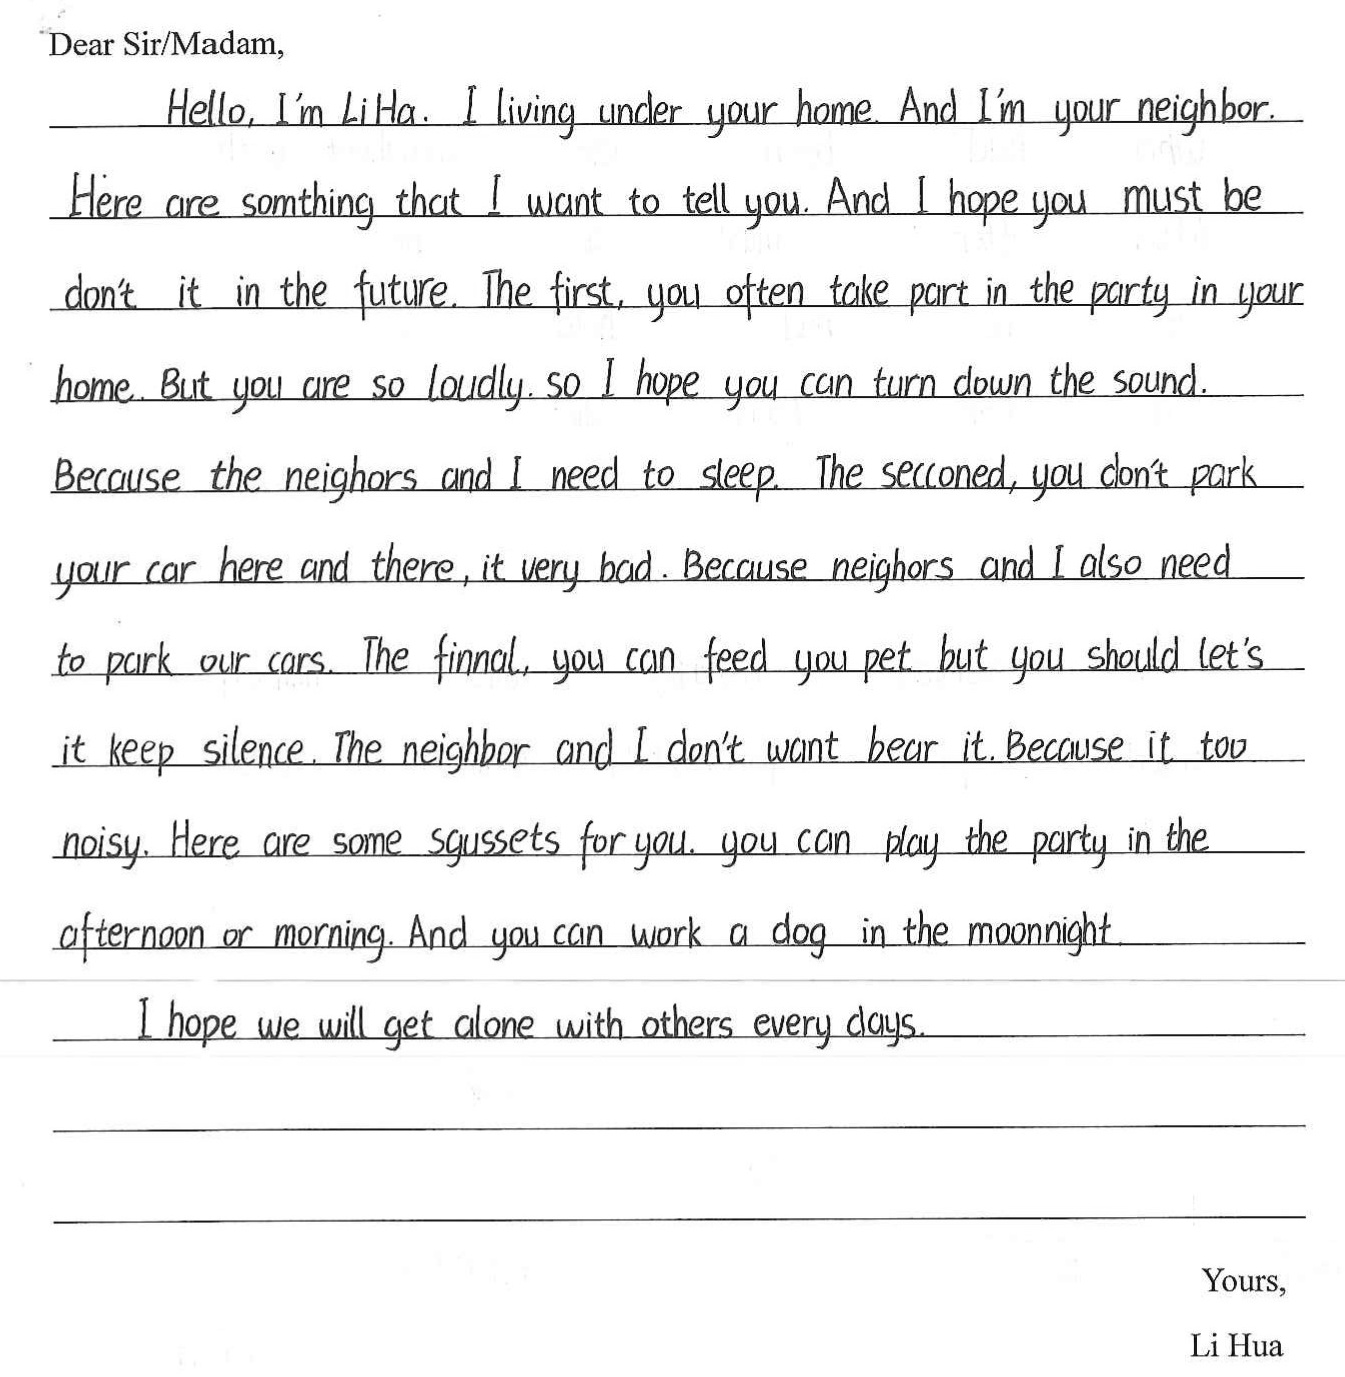 Dear Sir/Madam,
Hello, I'm Li Ha. I living under your home. And I'm your neighbor.
Here are somthing that I want to tell you. And I hope you must be
don't it in the future. The first, you often take part in the party in your
home. But you are so loudly. so I hope you can turn down the sound.
Because the neighors and I need to sleep. The secconed, you don't park
your car here and there, it very bad. Because neighors and I also need
to park our cars. The finnal, you can feed you pet but you should let's
it keep silence. The neighbor and I don't want bear it. Because it too
noisy. Here are some sgussets for you. you can play the party in the
afternoon or morning. And you can work a dog in the moonnight.
I hope we will get alone with others every days.
Yours,
Li Hua